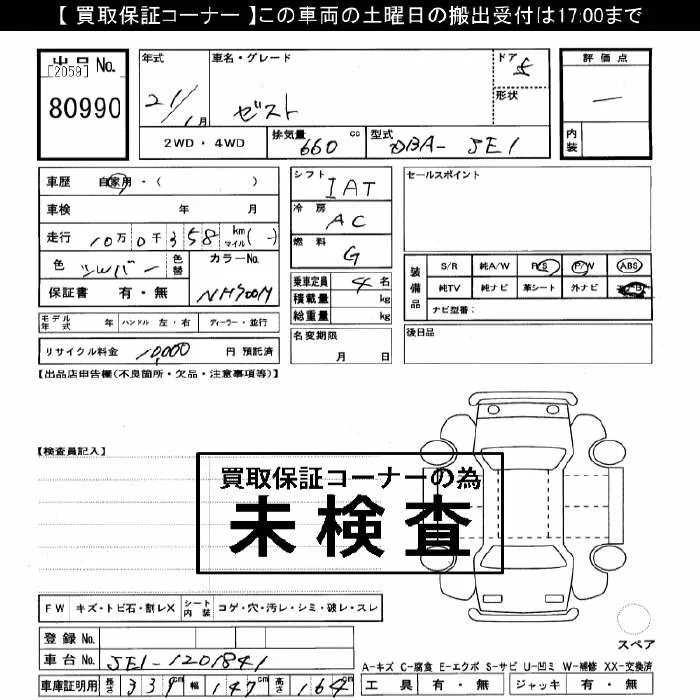 【 買取保証コーナー 】この車両の土曜日の搬出受付は17:00まで
出品 No.
[2059]
80990
年式 21/1月
車名・グレード ゼスト
ドア 5
形状
評価点 —
内装
2WD・4WD
排気量 660 cc
型式 DBA- JE1
車歴 自家用・( )
車検 年 月
走行 10万0千358 km マイル(-)
色 シルバー 色替 カラーNo. NH700M
保証書 有・無
シフト IAT
冷房 AC
燃料 G
乗車定員 4名
積載量 kg
総重量 kg
セールスポイント
装備品
S/R 純A/W P/S P/W ABS
純TV 純ナビ 革シート 外ナビ
ナビ型番:
モデル年式 年 ハンドル 左・右 ディーラー・並行
リサイクル料金 10,000 円 預託済
名変期限 月 日
後日品
【出品店申告欄(不良箇所・欠品・注意事項等)】
【検査員記入】
買取保証コーナーの為
未検査
FW キズ・トビ石・割レX シート内装 コゲ・穴・汚レ・シミ・破レ・スレ
登録 No.
車台 No. JE1-1201841
車庫証明用 長さ 339cm 幅 147cm 高さ 164cm
スペア
A-キズ C-腐食 E-エクボ S-サビ U-凹ミ W-補修 XX-交換済
工具 有・無 ジャッキ 有・無